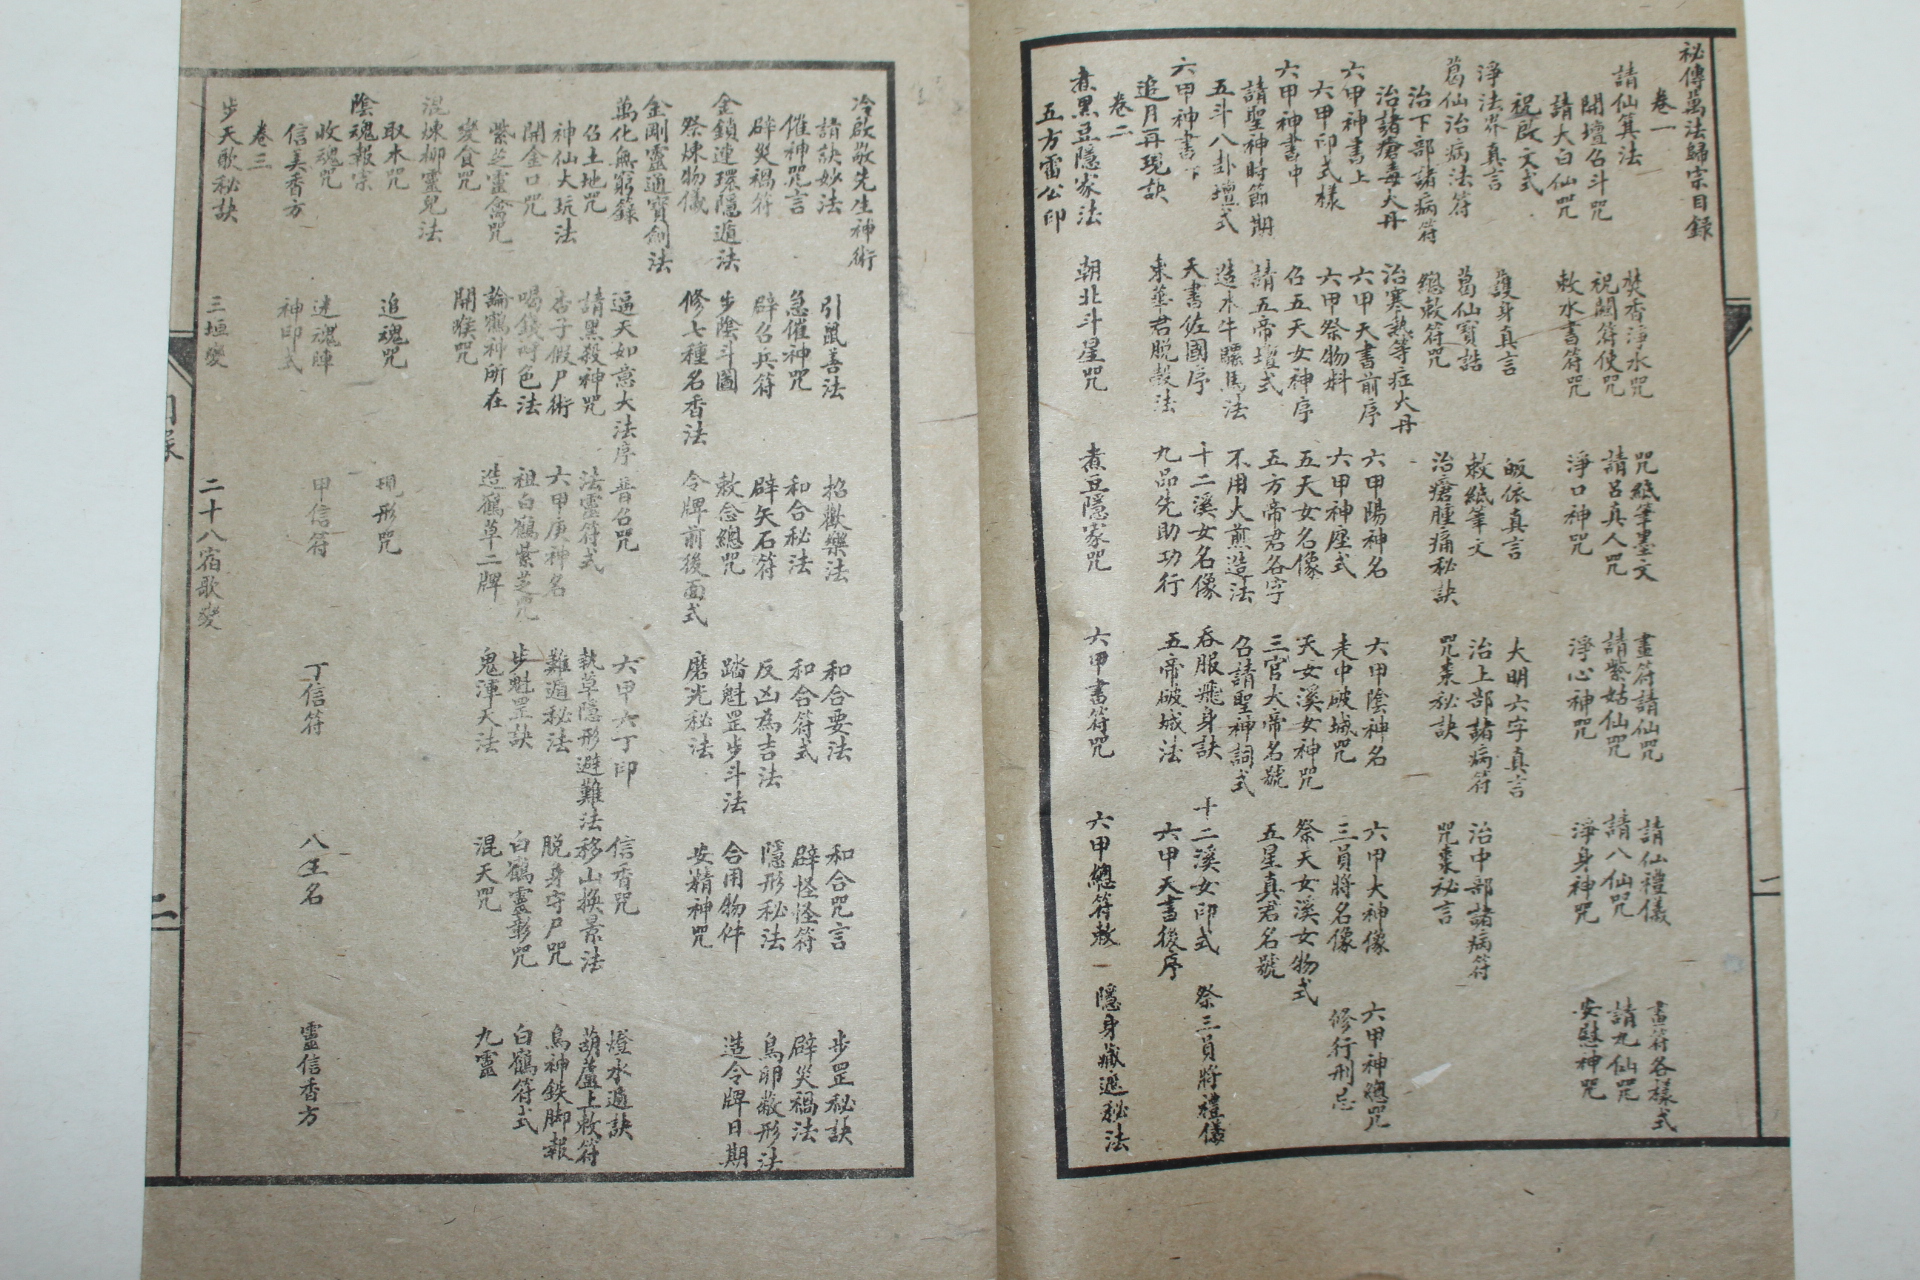 祕傳萬法歸宗目錄
卷一
請仙箕法 焚香淨水咒 咒紙筆墨文 畫符請仙咒 請仙禮儀 畫符各樣式
開壇召斗咒 祝闕符使咒 請呂真人咒 請紫姑仙咒 請八仙咒 請九仙咒
請大白仙咒 敕水書符咒 淨口神咒 淨心神咒 淨身神咒 安慰神咒
祝啟文式
淨法界真言 護身真言 皈依真言 大明六字真言
葛仙治病法符 葛仙寶誥 敕紙筆文 治上部諸病符 治中部諸病符
治下部諸病符 總敕符咒 治瘡腫痛秘訣 咒棗秘訣 咒棗秘言
治諸瘡毒大丹 治寒熱等症大丹
六甲神書上 六甲天書前序 六甲陽神名 六甲陰神名 六甲大神像 六甲神總咒
六甲印式樣 六甲祭物料 六甲神壓式 走中破城咒 三員將名像 修行刑忌
六甲神書中 召五天女神序 五天女名像 天女溪女神咒 祭天女溪女物式
請聖神時節期 請五帝壇式 五方帝君各字 三官大帝名號 五星真君名號
五斗八卦壇式 造水牛騾馬法 不用大煎造法 召請聖神詞式
六甲神書下 天書佐國序 十二溪女名像 吞服飛身訣 十二溪女印式 祭三員將禮儀
追月再現訣 東華君脫殼法 九品先助功行 五帝破城法 六甲天書後序
卷二
煮黑豆隱家法 朝北斗星咒 煮豆隱家咒 六甲書符咒 六甲總符敕 隱身藏遁秘法
五方雷公印
冷啟敬先生神術
請訣妙法 引鼠善法 招歡樂法 和合要法 和合咒言 步罡秘訣
催神咒言 急催神咒 和合秘法 和合符式 辟怪怪符 辟災禍法
辟災禍符 辟召兵符 辟矢石符 反凶為吉法 隱形秘法 鳥卵敝形法
金鎖連環隱遁法 步陰斗圖 敕念總咒 踏魁罡步斗法 合用物件 造令牌日期
祭煉物儀 修七種名香法 令牌前後面式 磨光秘法 安精神咒
金剛靈通寶劍法
萬化無窮錄 逼天如意大法序 普召咒 六甲六丁印 信香咒 燈水遁訣
召土地咒 請黑殺神咒 法靈符式 執草隱形避難法 移山換景法 葫蘆上敕符
神仙大玩法 杏子假尸術 六甲庚神名 難遁秘法 脫身守尸咒 鳥神鉄脚報
開金口咒 喝錢時色法 祖白鶴紫芝咒 步魁罡訣 白鶴靈彰咒 白鶴符式
紫芝靈禽咒 論鶴神所在 造鶴草二牌 鬼渾天法 混天咒 九靈
變食咒 開喉咒
混煉柳靈兒法
取木咒 追魂咒 現形咒
陰魂報宗
收魂咒 迷魂陣 甲信符 丁信符 八生名 靈信香方
信美香方 神印式
卷三
步天歌秘訣 三垣變 二十八宿歌變
二